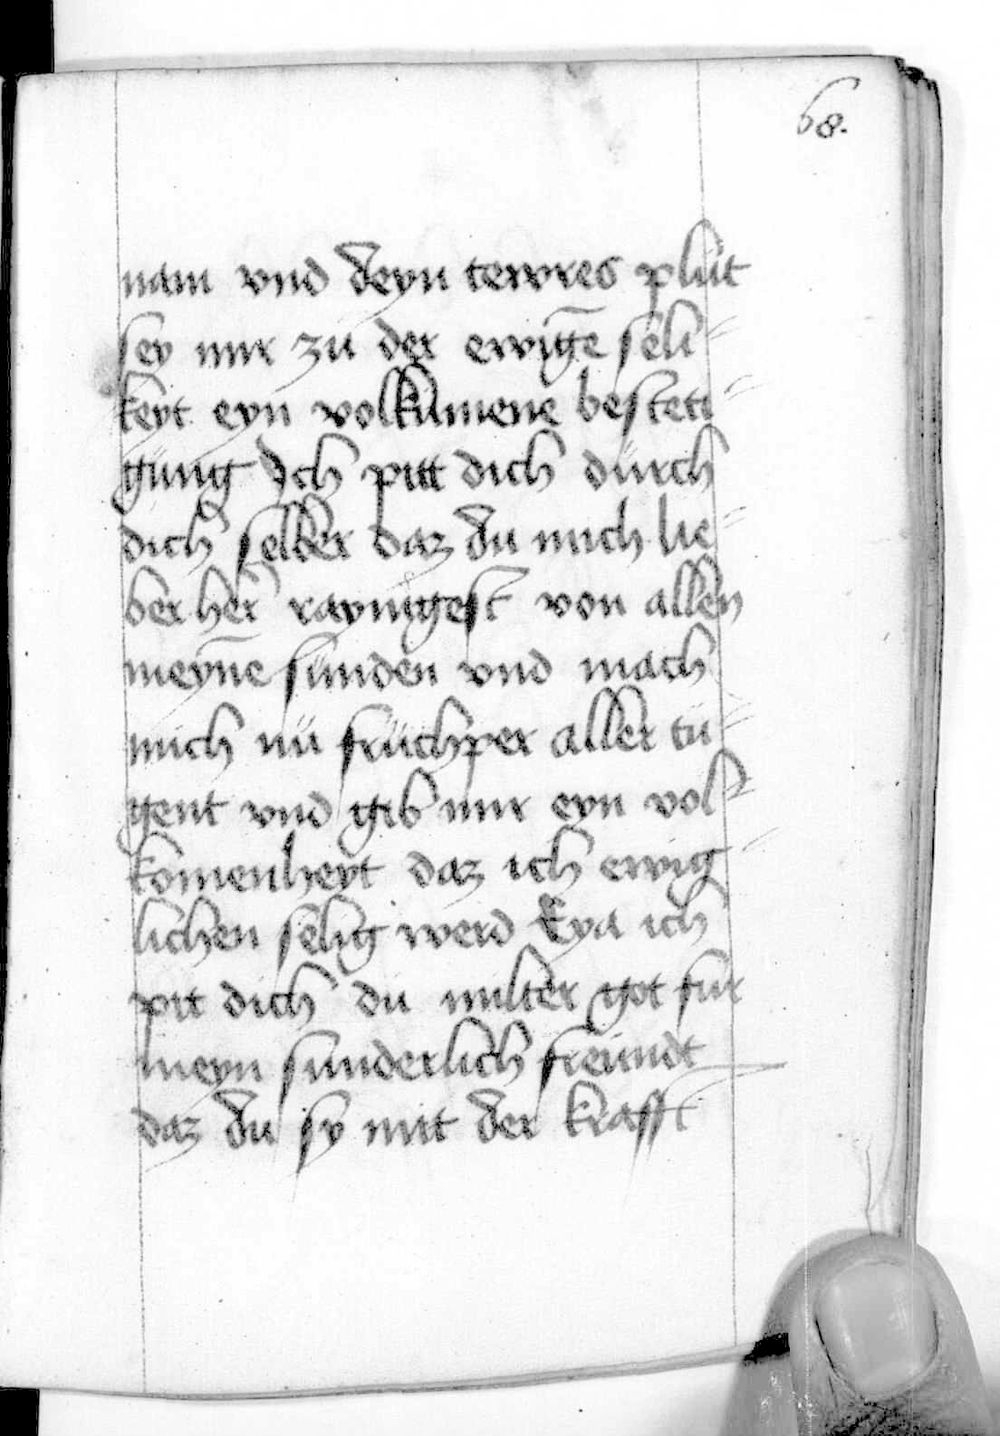 68.
nam vnd deyn tewres plut
sey mir zu der ewigē seli⸗
keyt eyn volkumene besteti⸗
gung Ich pitt dich durch
dich selber daz du mich lie⸗
ber her raynigest von allen
meyne̅ sunden vnd mach
mich nu fruchper aller tu⸗
gent vnd gib mir eyn vol⸗
komenheyt daz ich ewig⸗
lichen selig werd Eya ich
pit dich du milter got fur
meyn sunderlich freundt
daz du sy mit der krafft